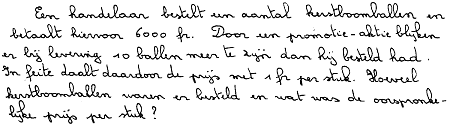 Een handelaar bestelt een aantal kerstboomballen en
betaalt hiervoor 6000 fr. Door een promotie-aktie blijken
er bij levering 10 ballen meer te zijn dan hij besteld had.
In feite daalt daardoor de prijs met 1 fr per stuk. Hoeveel
kerstboomballen waren er besteld en wat was de oorspronke-
lijke prijs per stuk?